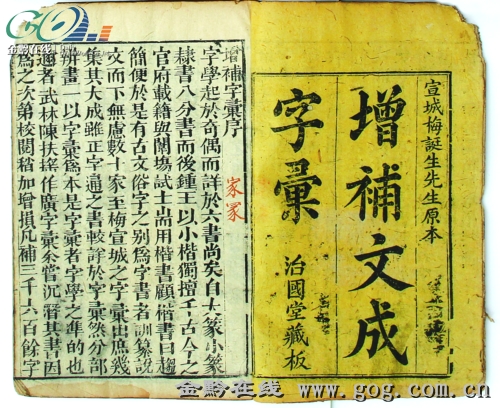 金黔在线
宣城梅誕生先生原本
增補文成
字彙
治國堂藏板
增補字彙序
字學起於奇偶而詳於六書尚矣自大篆小篆
隸書八分書而後鍾王以小楷獨擅千古今之
官府載籍與闈塲試士耑用楷書顧楷書日趨
簡便於是有古文俗字之别為字書者訓纂說
文而下無慮數十家至梅宣城之字彙出庶幾
集其大成雖正字通之書較詳於字彙然分部
辨畫一以字彙為本是字彙者字學之凖的也
邇者武林陳扶搖作廣字彙余嘗沉酣其書因
為之次第校閱稍加增損凡補三千六百餘字
家冢
金黔在线 www.gog.com.cn